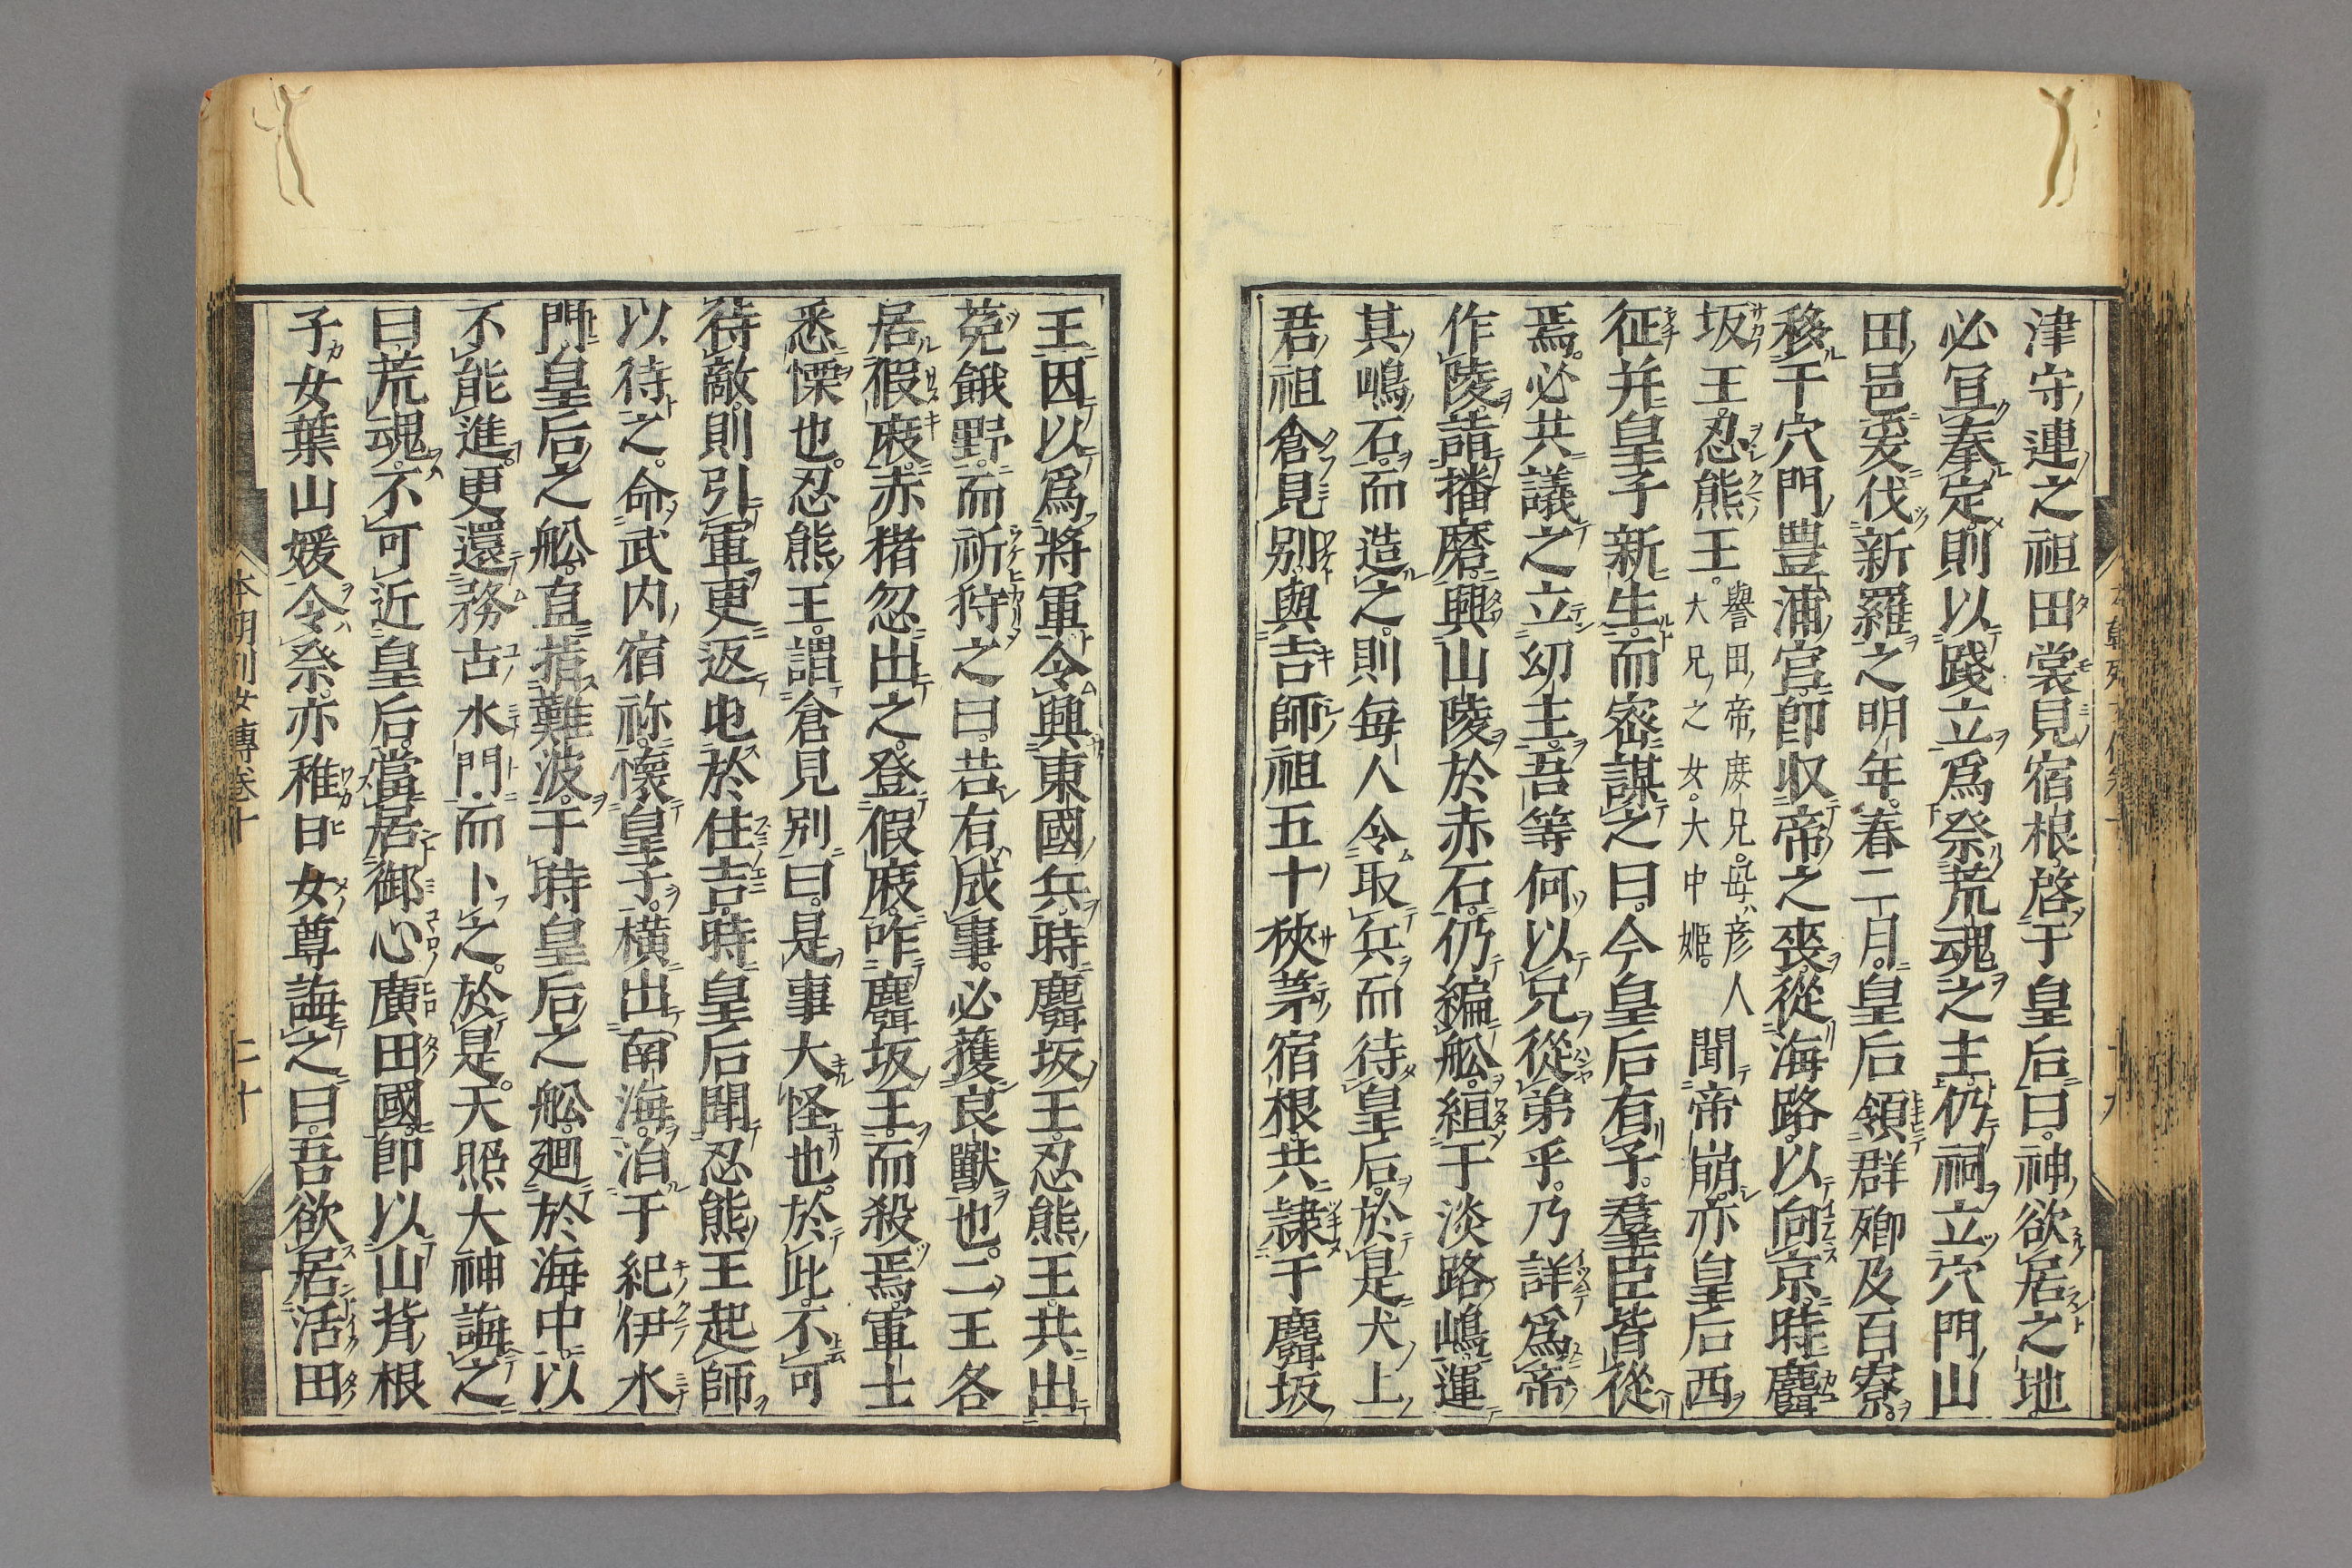 津守連之祖田裳見宿根啓于皇后曰神欲居之地
必冝奉定則以踐立爲祭荒魂之主仍祠立穴門山
田邑爰伐新羅之明年春二月皇后領群卿及百寮
移于穴門豊浦宮卽収帝之喪從海路以向京時麛
坂王忍熊王譽田帝庶兄母彦人大兄之女大中姫聞帝崩亦皇后西
征并皇子新生而密謀之曰今皇后有子羣臣皆從
焉必共議之立幼主吾等何以兄從弟乎乃詳爲帝
作陵請播磨興山陵於赤石仍編舩絙于淡路嶋運
其嶋石而造之則每人令取兵而待皇后於是犬上
君祖倉見別與吉師祖五十狹茅宿根共隷于麛坂
王因以爲將軍令興東國兵時麛坂王忍熊王共出
菟餓野而祈狩之曰若有成事必獲良獸也二王各
居假庪赤猪忽出之登假庪咋麛坂王而殺焉軍士
悉慄也忍熊王謂倉見別曰是事大怪也於此不可
待敵則引軍更返屯於住吉時皇后聞忍熊王起師
以待之命武内宿祢懷皇子橫出南海泊于紀伊水
門皇后之舩直指難波于時皇后之舩廻於海中以
不能進更還務古水門而卜之於是天照大神誨之
曰荒魂不可近皇后當居御心廣田國卽以山背根
子女葉山媛令祭亦稚日女尊誨之曰吾欲居活田
本朝列女傳卷十
二十